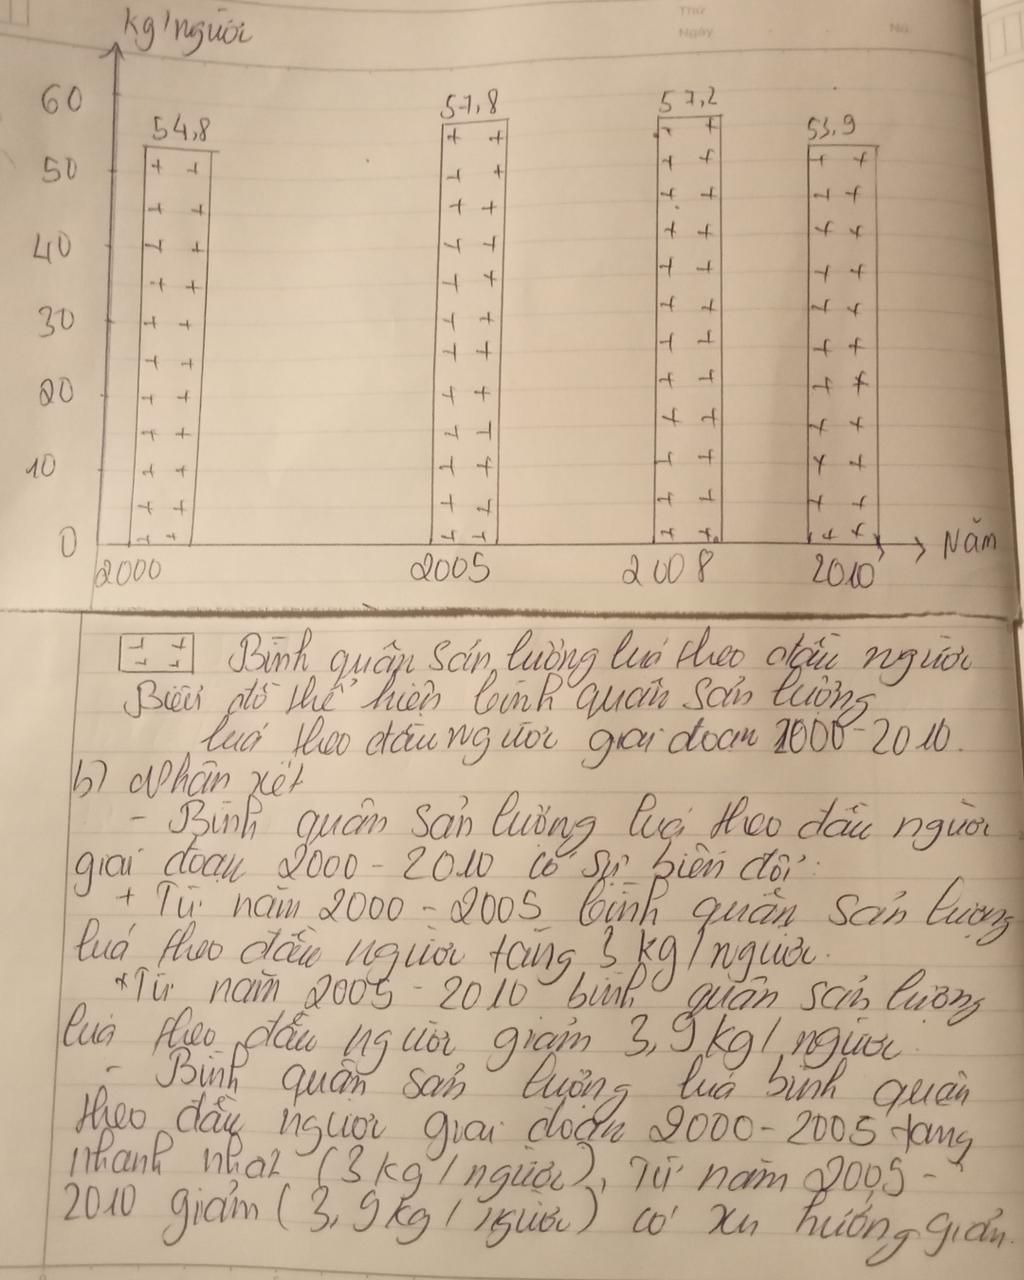 Thứ
Ngày
No
kg/người
60
50
40
30
20
10
0
54,8
57,8
57,2
53,9
2000
2005
2008
2010
Năm
Bình quân sản lường luá theo đầu người
Biểu đồ thể hiện bình quân sản lường
luá theo đầu người giai đoạn 2000-2010.
b) Nhận xét
- Bình quân sản lường luá theo đầu người
giai đoạn 2000 - 2010 có sự biến đổi:
+ Từ năm 2000 - 2005 bình quân sản lương
luá theo đầu người tăng 3 kg/người.
+ Từ năm 2005 - 2010 bình quân sản lương
luá theo đầu người giảm 3,9 kg/người.
- Bình quân sản lường luá bình quân
theo đầu người giai đoạn 2000 - 2005 tăng
nhanh nhất (3 kg/người), Từ năm 2005 -
2010 giảm (3,9 kg/người) có xu hướng giảm.